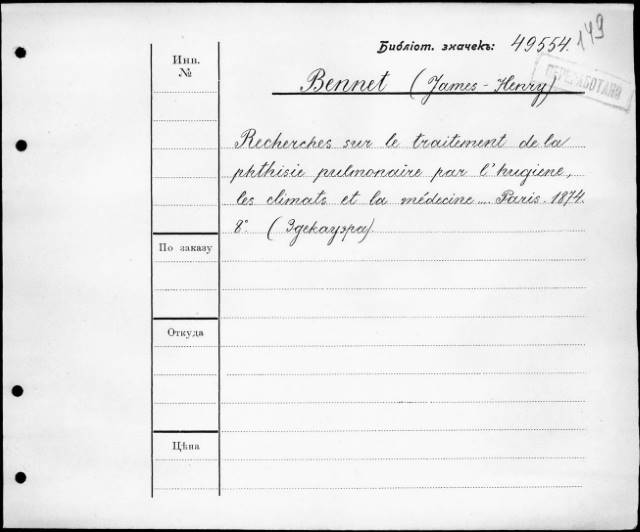 Библіот. значекъ: 49554.
149
ПЕРЕРАБОТАНО
Инв.
№
Bennet (James-Henry)
Recherches sur le traitement de la
phthisie pulmonaire par l'hugiene,
les climats et la médecine .... Paris. 1874.
8° (Эдекауэра)
По заказу
Откуда
Цѣна